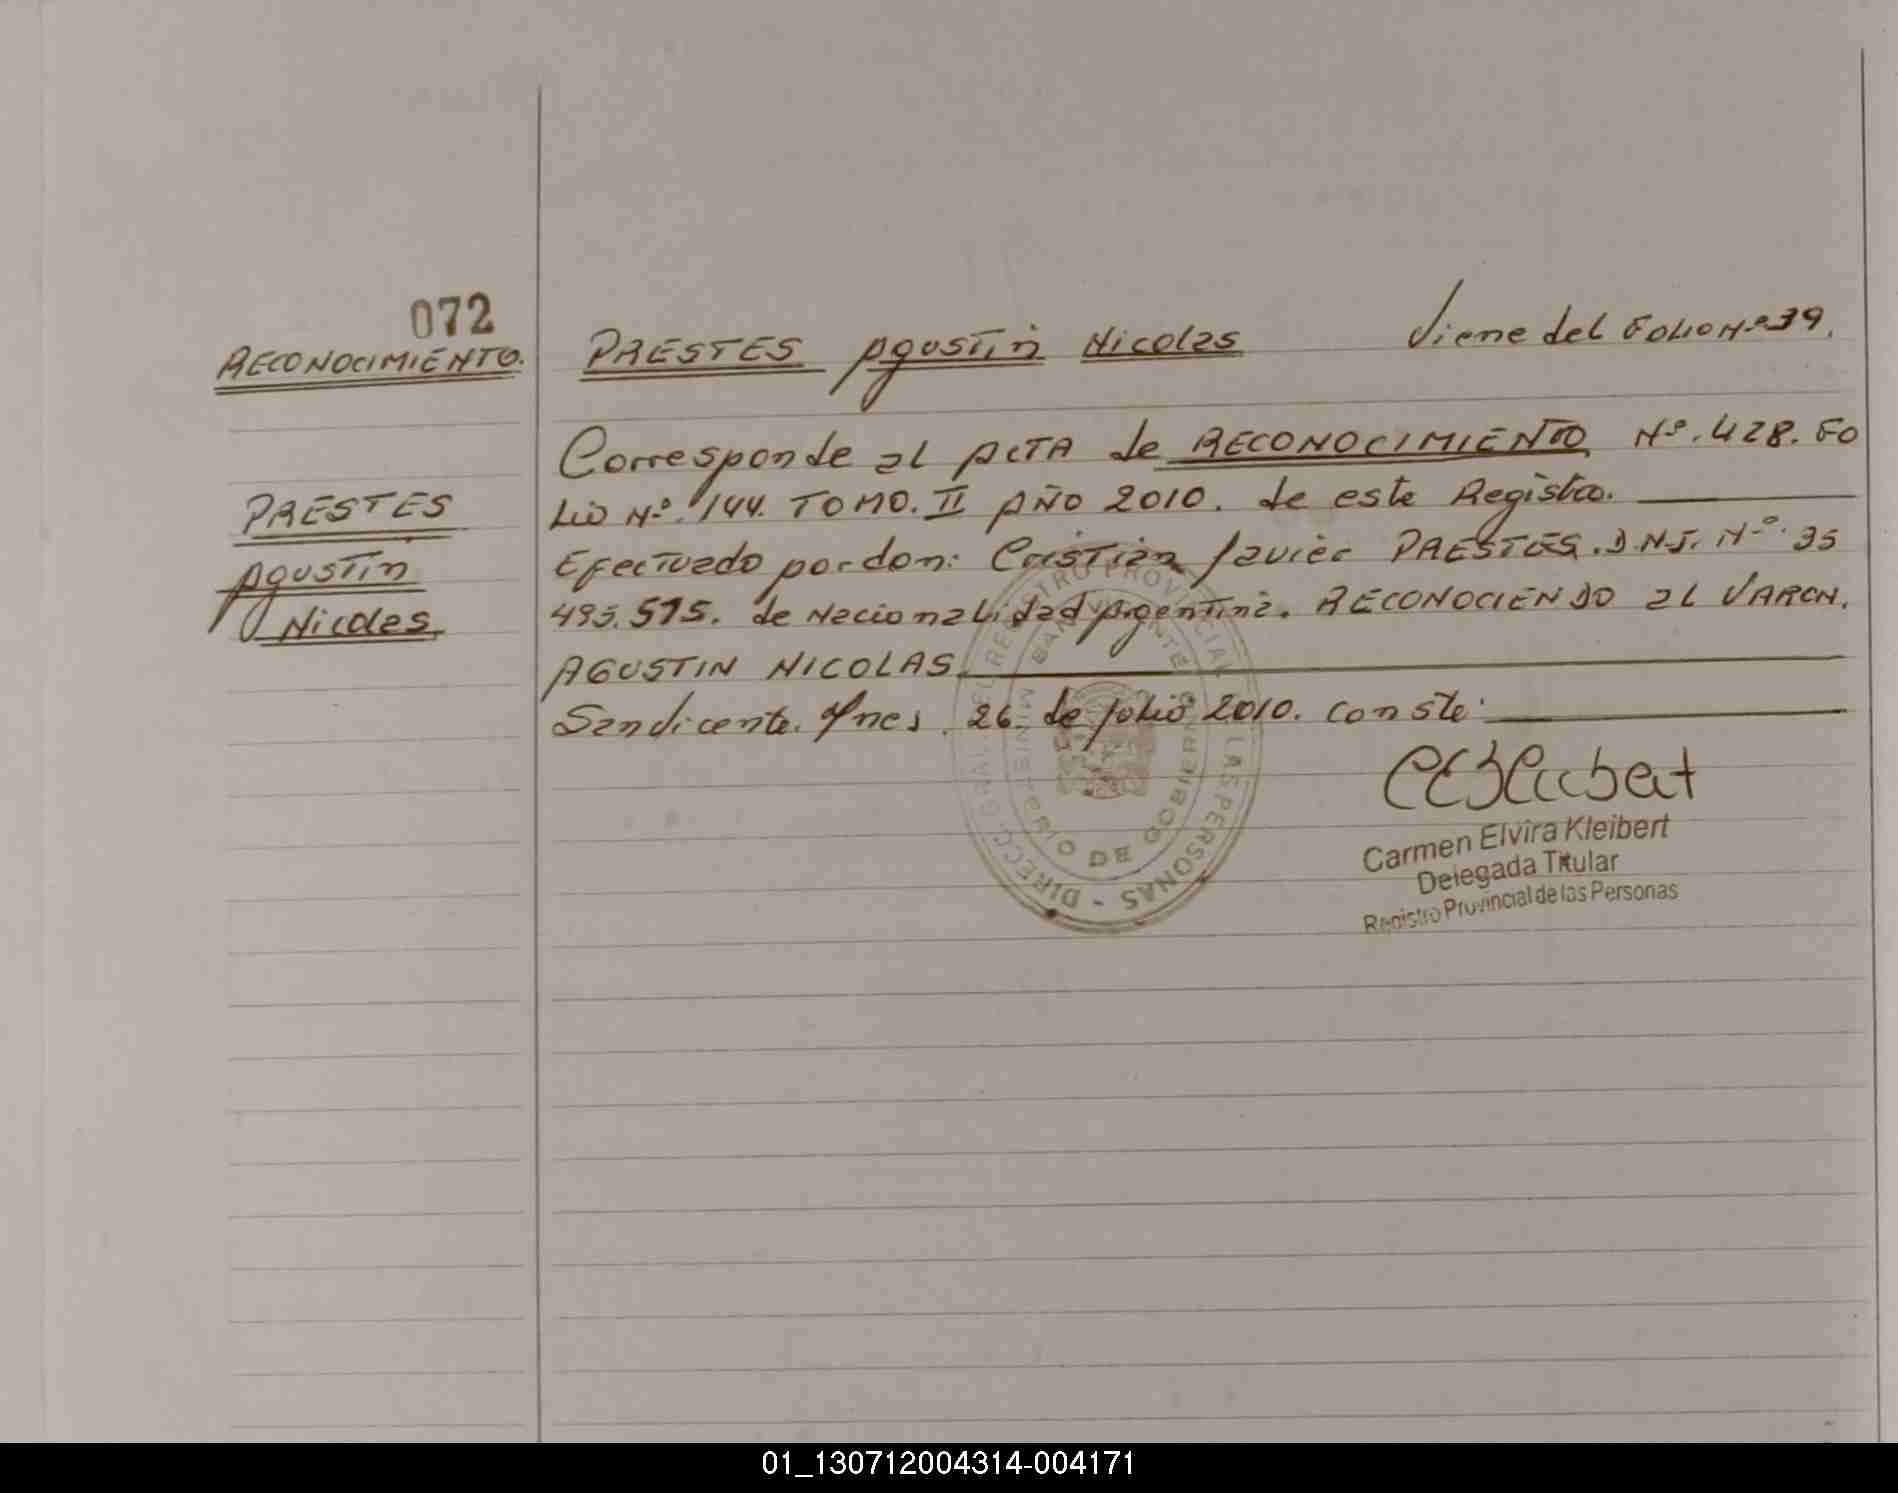 072
RECONOCIMIENTO.
PRESTES
Agustin
Nicolas
PRESTES Agustin Nicolas Viene del Folio Nº 39.
Corresponde al Acta de RECONOCIMIENTO Nº. 428. Fo
lio Nº. 144. TOMO. II AÑO 2010. de este Registro.
Efectuado por don: Cristian Javier PRESTES. D.N.I. Nº. 35
495.575. de nacionalidad Argentina. RECONOCIENDO al VARON.
AGUSTIN NICOLAS
San Vicente. Mnes. 26. de julio 2010. conste:
DIRECC. GRAL. DEL REGISTRO PROVINCIAL DE LAS PERSONAS -
SAN VICENTE
MINISTERIO DE GOBIERNO
Carmen Elvira Kleibert
Delegada Titular
Registro Provincial de las Personas
01_130712004314-004171